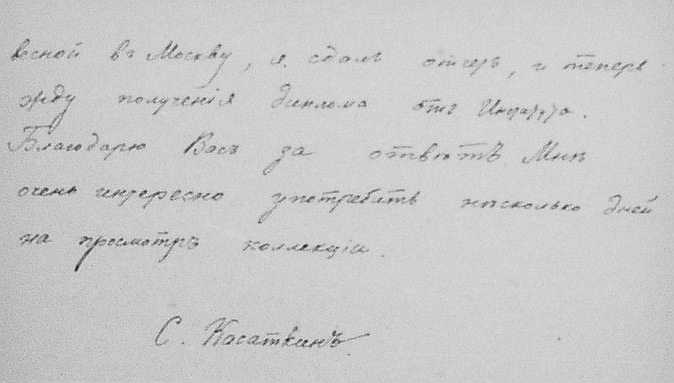 весной въ Москву, я сдалъ отчетъ, и теперь
жду полученія диплома отъ
Благодарю Васъ за отвѣтъ Мнѣ
очень интересно употребить нѣсколько дней
на просмотръ коллекціи.
С. Касаткинъ